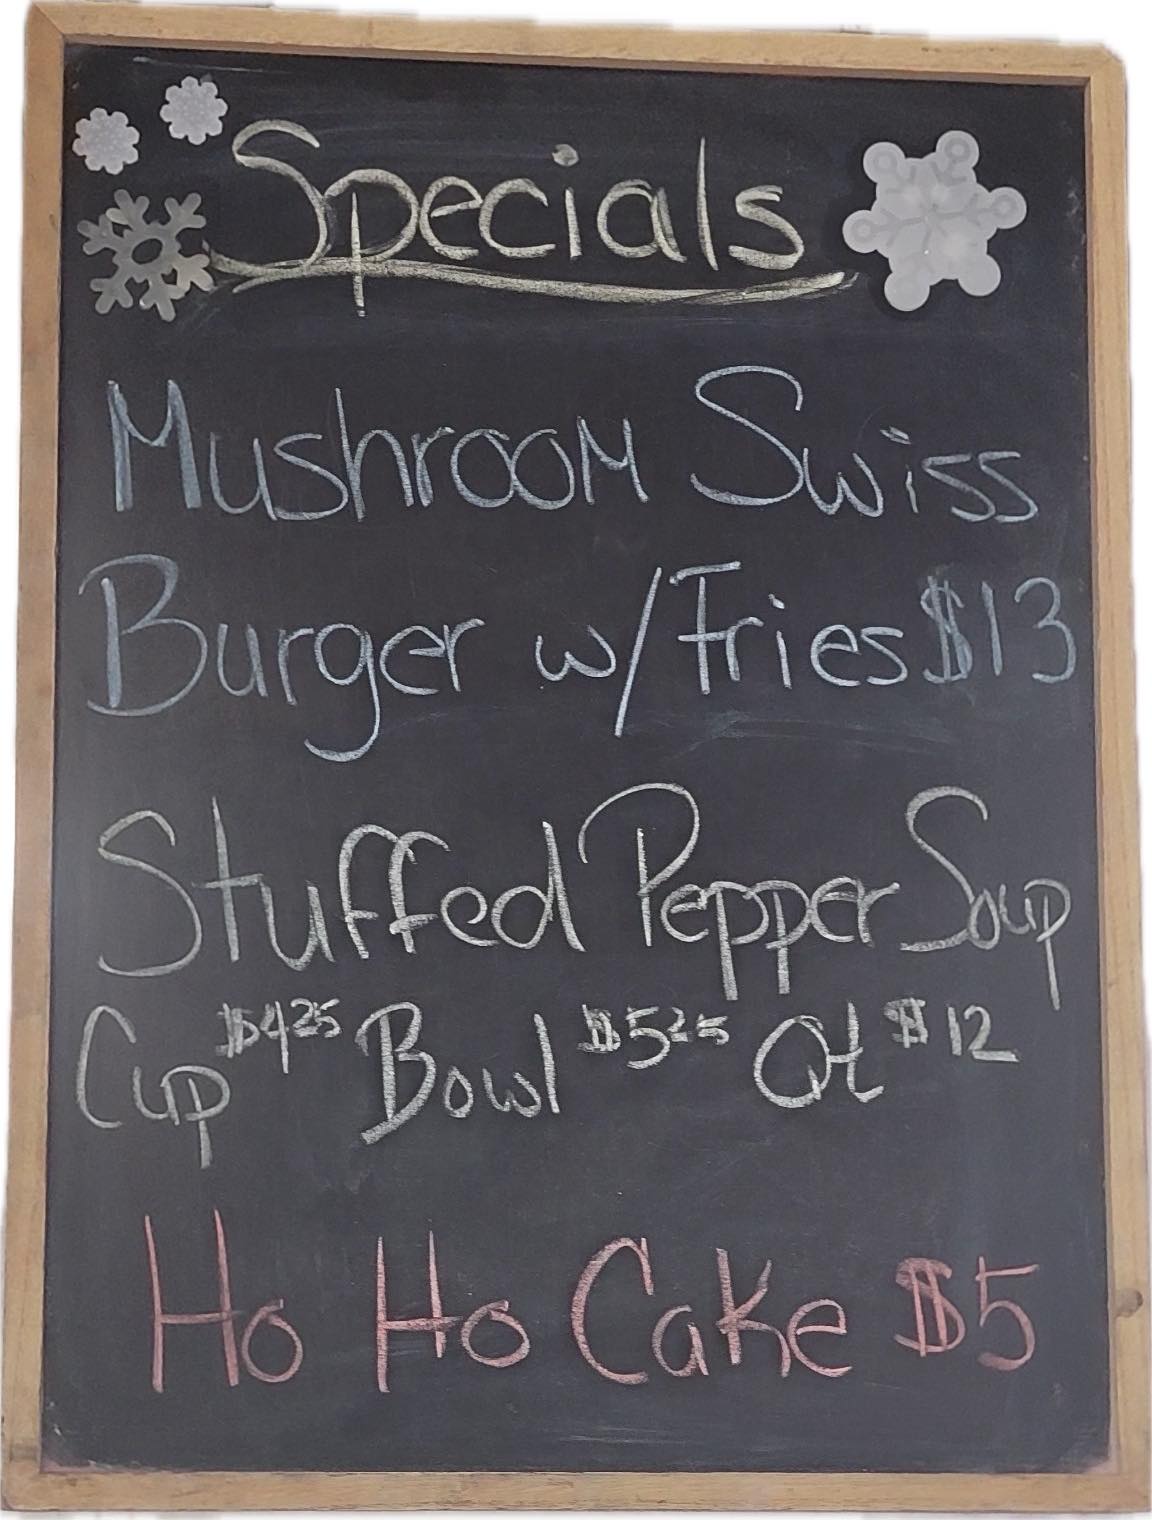 Specials
Mushroom Swiss
Burger w/Fries $13
Stuffed Pepper Soup
Cup $4.25 Bowl $5.25 Qt $12
Ho Ho Cake $5